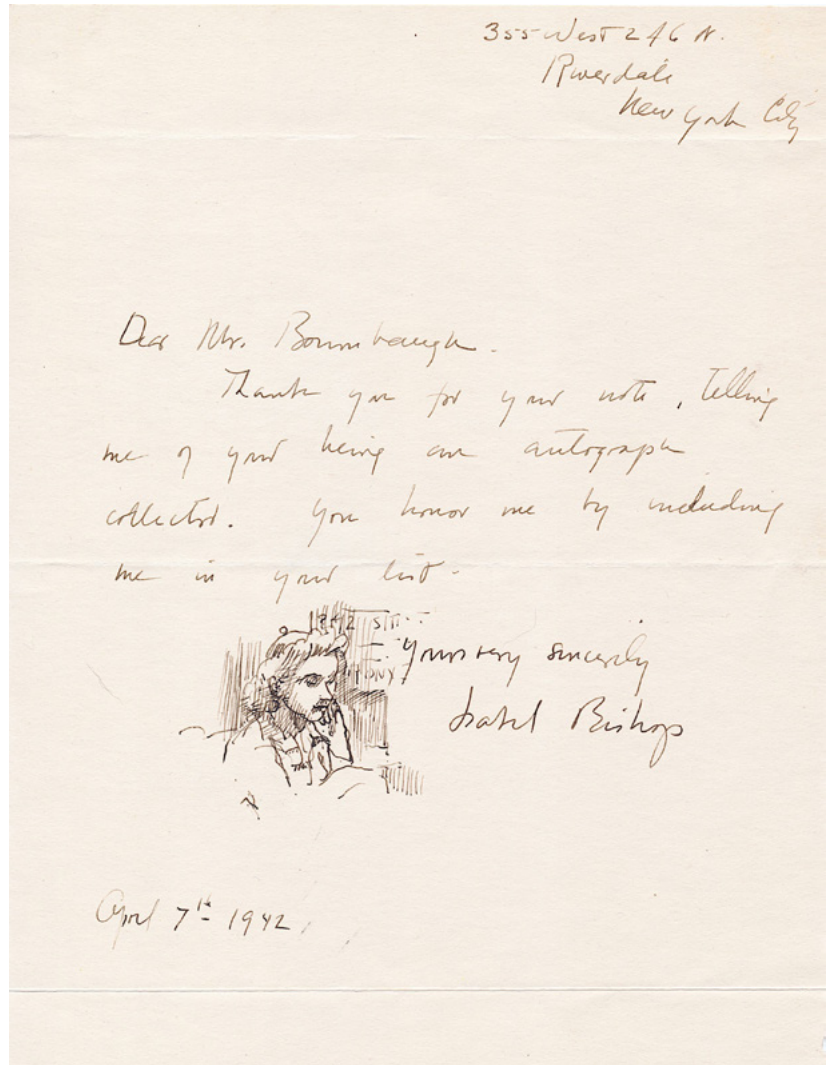 355 West 246 St.
Riverdale
New York City
Dear Mr. Bournbaugh.
Thank you for your note, telling
me of your being an autograph
collector. You honor me by including
me in your list.
Yours very sincerely
Isabel Bishop
April 7th 1942